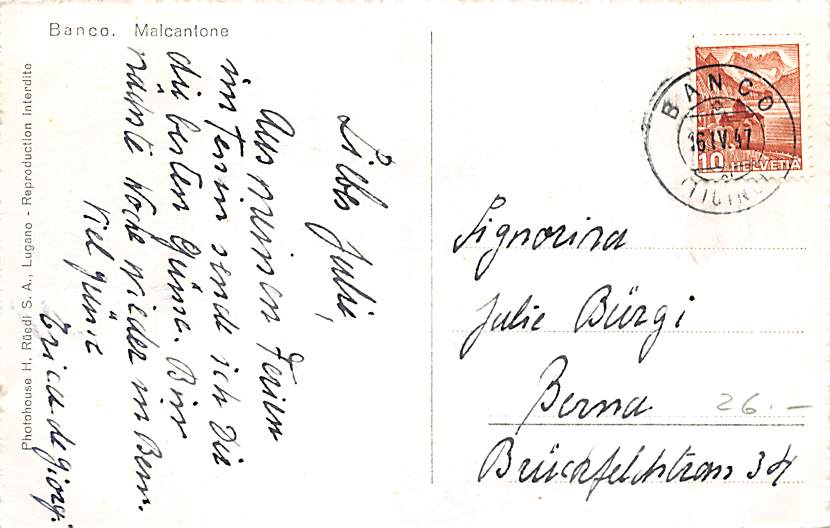 Banco. Malcantone
Photohouse H. Rüedi S. A., Lugano - Reproduction interdite
Liebes Julie,
Aus meinen Ferien
im Tessin sende ich Dir
die besten Grüsse. Bin
nächste Woche wieder in Bern.
Viel Grüsse
Erica de Giorgi.
BANCO
16.IV.47
(TICINO)
10 HELVETIA
Signorina
Julie Bürgi
Berna
Brückfeldstrass 34
26.-